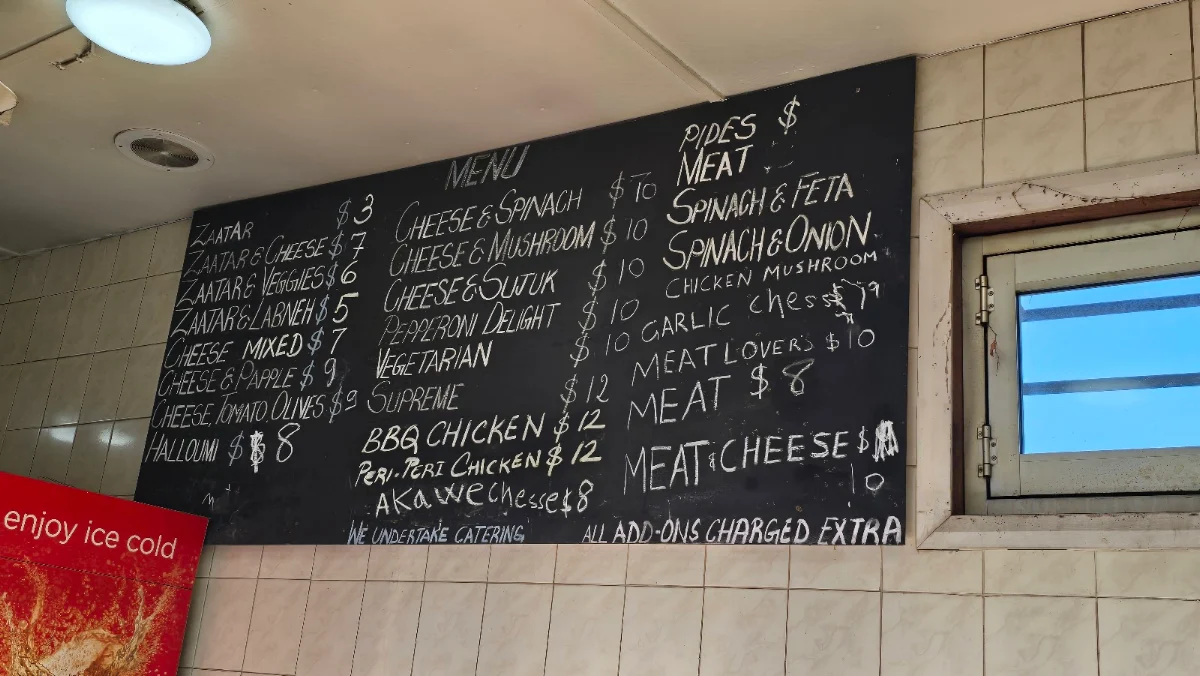 MENU
ZAATAR $3
ZAATAR & CHEESE $7
ZAATAR & VEGGIES $6
ZAATAR & LABNEH $5
CHEESE MIXED $7
CHEESE & P/APPLE $9
CHEESE, TOMATO OLIVES $9
HALLOUMI $ 8
CHEESE & SPINACH $10
CHEESE & MUSHROOM $10
CHEESE & SUJUK $10
PEPPERONI DELIGHT $10
VEGETARIAN $10
SUPREME $12
BBQ CHICKEN $12
PERI-PERI CHICKEN $12
AKAWE Chesse $8
PIDES $
MEAT
SPINACH & FETA
SPINACH & ONION
CHICKEN MUSHROOM
GARLIC Chess
MEAT LOVERS $10
MEAT $8
MEAT & CHEESE $
10
WE UNDERTAKE CATERING
ALL ADD-ONS CHARGED EXTRA
enjoy ice cold